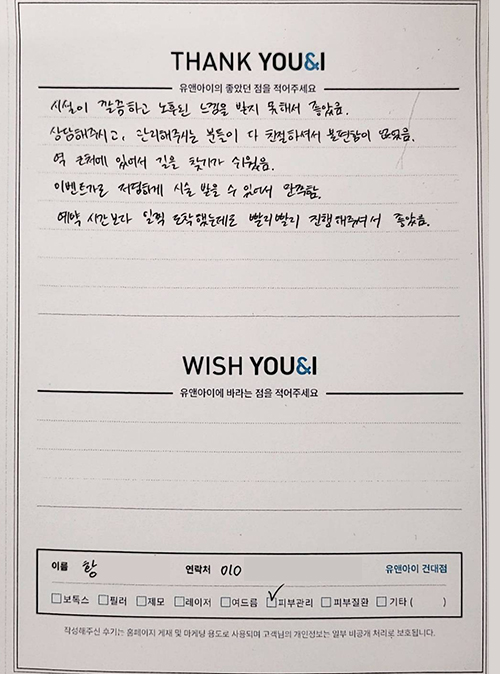 THANK YOU&I
유앤아이의 좋았던 점을 적어주세요
시설이 깔끔하고 노후된 느낌을 받지 못해서 좋았음.
상담해주시고, 관리해주시는 분들이 다 친절하셔서 불편함이 없었음.
역 근처에 있어서 길을 찾기가 쉬웠음.
이벤트가로 저렴하게 시술 받을 수 있어서 만족함.
예약 시간보다 일찍 도착했는데도 빨리빨리 진행해주셔서 좋았음.
WISH YOU&I
유앤아이에 바라는 점을 적어주세요
이름 황 연락처 010 유앤아이 건대점
보톡스 필러 제모 레이저 여드름 피부관리 피부질환 기타 ( )
작성해주신 후기는 홈페이지 게재 및 마케팅 용도로 사용되며 고객님의 개인정보는 일부 비공개 처리로 보호됩니다.